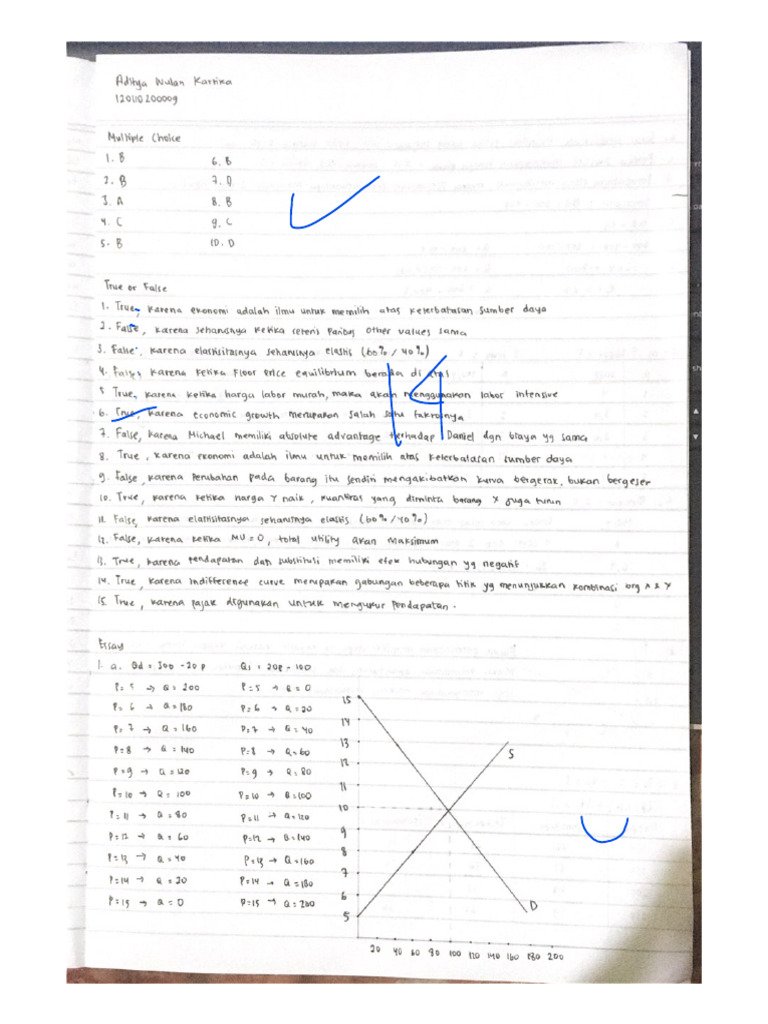 Aditya Wulan Kartika
120110200009
Multiple Choice
1. B 6. B
2. B 7. D
3. A 8. B
4. C 9. C
5. B 10. D
14
True or False
1. True, karena ekonomi adalah ilmu untuk memilih atas keterbatasan sumber daya
2. False, karena seharusnya ketika ceteris paribus other values sama
3. False, karena elastisitasnya seharusnya elastis (60% / 40%)
4. False, karena ketika Floor price equilibrium berada di atas
5 True, karena ketika harga labor murah, maka akan menggunakan labor intensive
6. True, karena economic growth merupakan salah satu faktornya
7. False, karena Michael memiliki absolute advantage terhadap Daniel dgn biaya yg sama
8. True, karena ekonomi adalah ilmu untuk memilih atas keterbatasan sumber daya
9. False, karena perubahan pada barang itu sendiri mengakibatkan kurva bergerak, bukan bergeser
10. True, karena ketika harga Y naik, kuantitas yang diminta barang X juga turun
11. False, karena elastisitasnya seharusnya elastis (60% / 40%)
12. False, karena ketika MU = 0, total utility akan maksimum
13. True, karena pendapatan dan substitusi memiliki efek hubungan yg negatif
14. True, karena Indifference curve merupakan gabungan beberapa titik yg menunjukkan kombinasi brg X & Y
15. True, karena pajak digunakan untuk mengukur pendapatan.
Essay
1. a. Qd = 300 - 20p Qs = 20p - 100
P = 5 → Q = 200 P = 5 → Q = 0
P = 6 → Q = 180 P = 6 → Q = 20
P = 7 → Q = 160 P = 7 → Q = 40
P = 8 → Q = 140 P = 8 → Q = 60
P = 9 → Q = 120 P = 9 → Q = 80
P = 10 → Q = 100 P = 10 → Q = 100
P = 11 → Q = 80 P = 11 → Q = 120
P = 12 → Q = 60 P = 12 → Q = 140
P = 13 → Q = 40 P = 13 → Q = 160
P = 14 → Q = 20 P = 14 → Q = 180
P = 15 → Q = 0 P = 15 → Q = 200
15
14
13
S
12
11
10
9
8
7
6
D
5
20 40 60 80 100 120 140 160 180 200